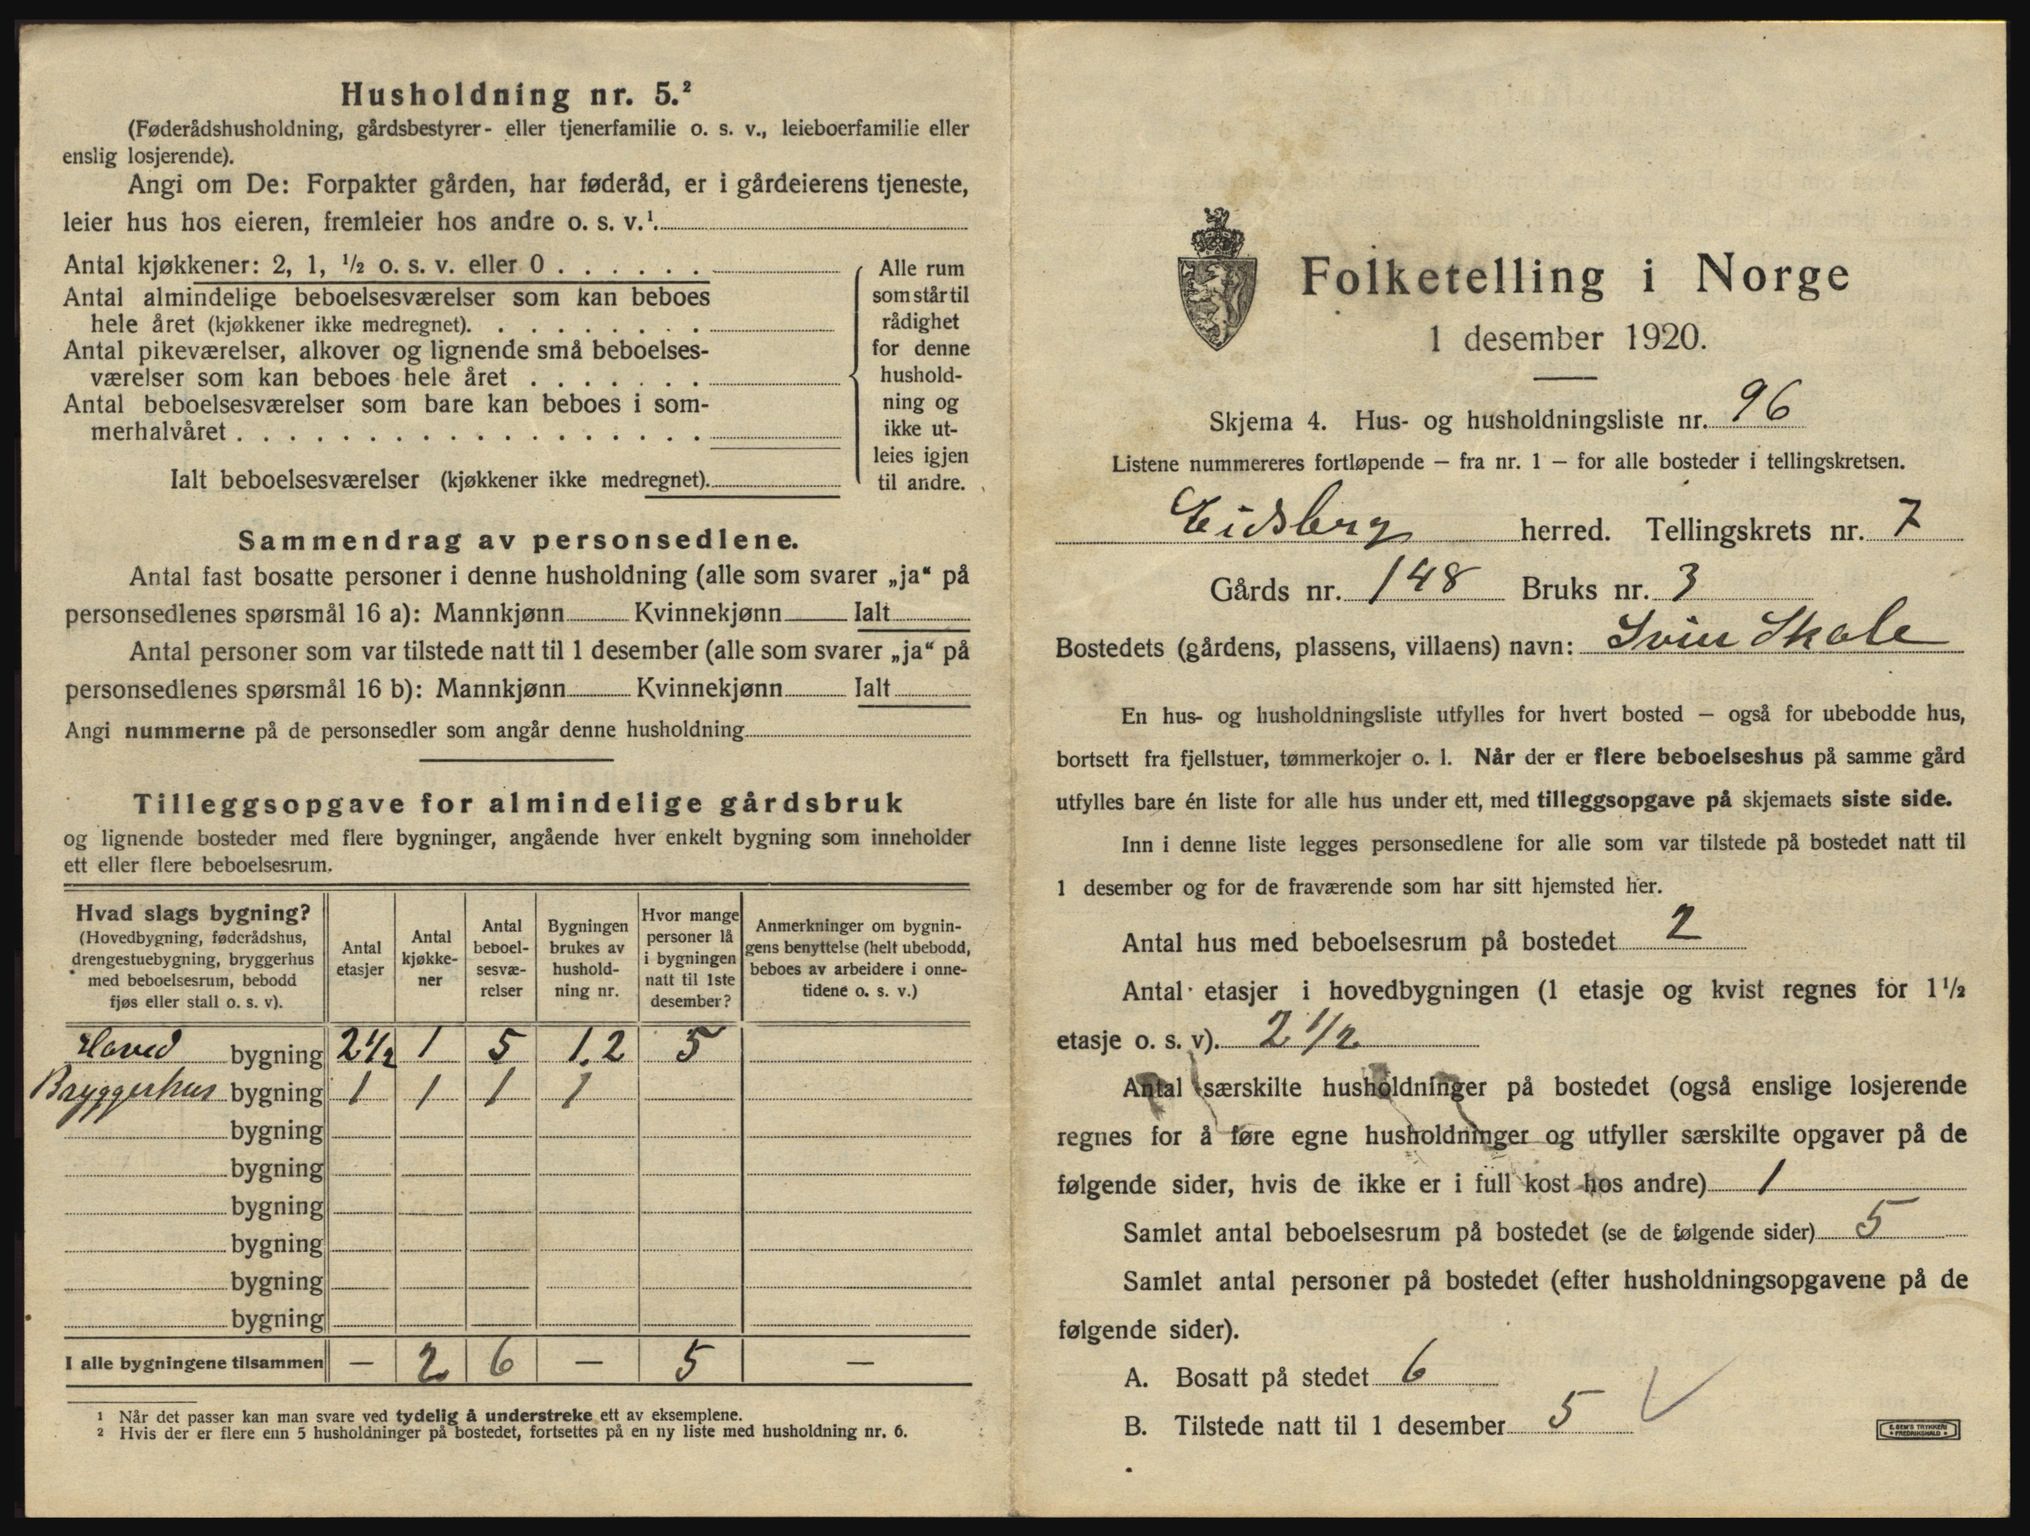 Husholdning nr. 5.²
(Føderådshusholdning, gårdsbestyrer- eller tjenerfamilie o. s. v., leieboerfamilie eller
enslig losjerende).
Angi om De: Forpakter gården, har føderåd, er i gårdeierens tjeneste,
leier hus hos eieren, fremleier hos andre o. s. v.¹.
Antal kjøkkener: 2, 1, ½ o. s. v. eller 0 . . . . . .
Antal almindelige beboelsesværelser som kan beboes
hele året (kjøkkener ikke medregnet). . . . . . . . .
Antal pikeværelser, alkover og lignende små beboelses-
værelser som kan beboes hele året . . . . . . .
Antal beboelsesværelser som bare kan beboes i som-
merhalvåret . . . . . . . . . . . . . . . . . .
Ialt beboelsesværelser (kjøkkener ikke medregnet).
Alle rum
som står til
rådighet
for denne
hushold-
ning og
ikke ut-
leies igjen
til andre.
Sammendrag av personsedlene.
Antal fast bosatte personer i denne husholdning (alle som svarer „ja“ på
personsedlenes spørsmål 16 a): Mannkjønn Kvinnekjønn Ialt
Antal personer som var tilstede natt til 1 desember (alle som svarer „ja“ på
personsedlenes spørsmål 16 b): Mannkjønn Kvinnekjønn Ialt
Angi nummerne på de personsedler som angår denne husholdning
Tilleggsopgave for almindelige gårdsbruk
og lignende bosteder med flere bygninger, angående hver enkelt bygning som inneholder
ett eller flere beboelsesrum.
Hvad slags bygning?
(Hovedbygning, føderådshus,
drengestuebygning, bryggerhus
med beboelsesrum, bebodd
fjøs eller stall o. s. v).
Antal
etasjer
Antal
kjøkke-
ner
Antal
beboel-
sesvæ-
relser
Bygningen
brukes av
hushold-
ning nr.
Hvor mange
personer lå
i bygningen
natt til 1ste
desember?
Anmerkninger om bygnin-
gens benyttelse (helt ubebodd,
beboes av arbeidere i onne-
tidene o. s. v.)
Hoved bygning 2½ 1 5 1.2 5
Bryggerhus bygning 1 1 1 1
bygning
bygning
bygning
bygning
bygning
bygning
I alle bygningene tilsammen — 2 6 — 5 —
¹ Når det passer kan man svare ved tydelig å understreke ett av eksemplene.
² Hvis der er flere enn 5 husholdninger på bostedet, fortsettes på en ny liste med husholdning nr. 6.
Folketelling i Norge
1 desember 1920.
Skjema 4. Hus- og husholdningsliste nr. 96
Listene nummereres fortløpende — fra nr. 1 — for alle bosteder i tellingskretsen.
Eidsberg herred. Tellingskrets nr. 7
Gårds nr. 148 Bruks nr. 3
Bostedets (gårdens, plassens, villaens) navn: Svin Skole
En hus- og husholdningsliste utfylles for hvert bosted — også for ubebodde hus,
bortsett fra fjellstuer, tømmerkojer o. l. Når der er flere beboelseshus på samme gård
utfylles bare én liste for alle hus under ett, med tilleggsopgave på skjemaets siste side.
Inn i denne liste legges personsedlene for alle som var tilstede på bostedet natt til
1 desember og for de fraværende som har sitt hjemsted her.
Antal hus med beboelsesrum på bostedet 2
Antal etasjer i hovedbygningen (1 etasje og kvist regnes for 1½
etasje o. s. v). 2 ½
Antal særskilte husholdninger på bostedet (også enslige losjerende
regnes for å føre egne husholdninger og utfyller særskilte opgaver på de
følgende sider, hvis de ikke er i full kost hos andre) 1
Samlet antal beboelsesrum på bostedet (se de følgende sider) 5
Samlet antal personer på bostedet (efter husholdningsopgavene på de
følgende sider).
A. Bosatt på stedet 6
B. Tilstede natt til 1 desember 5
FREDRIKSHALD